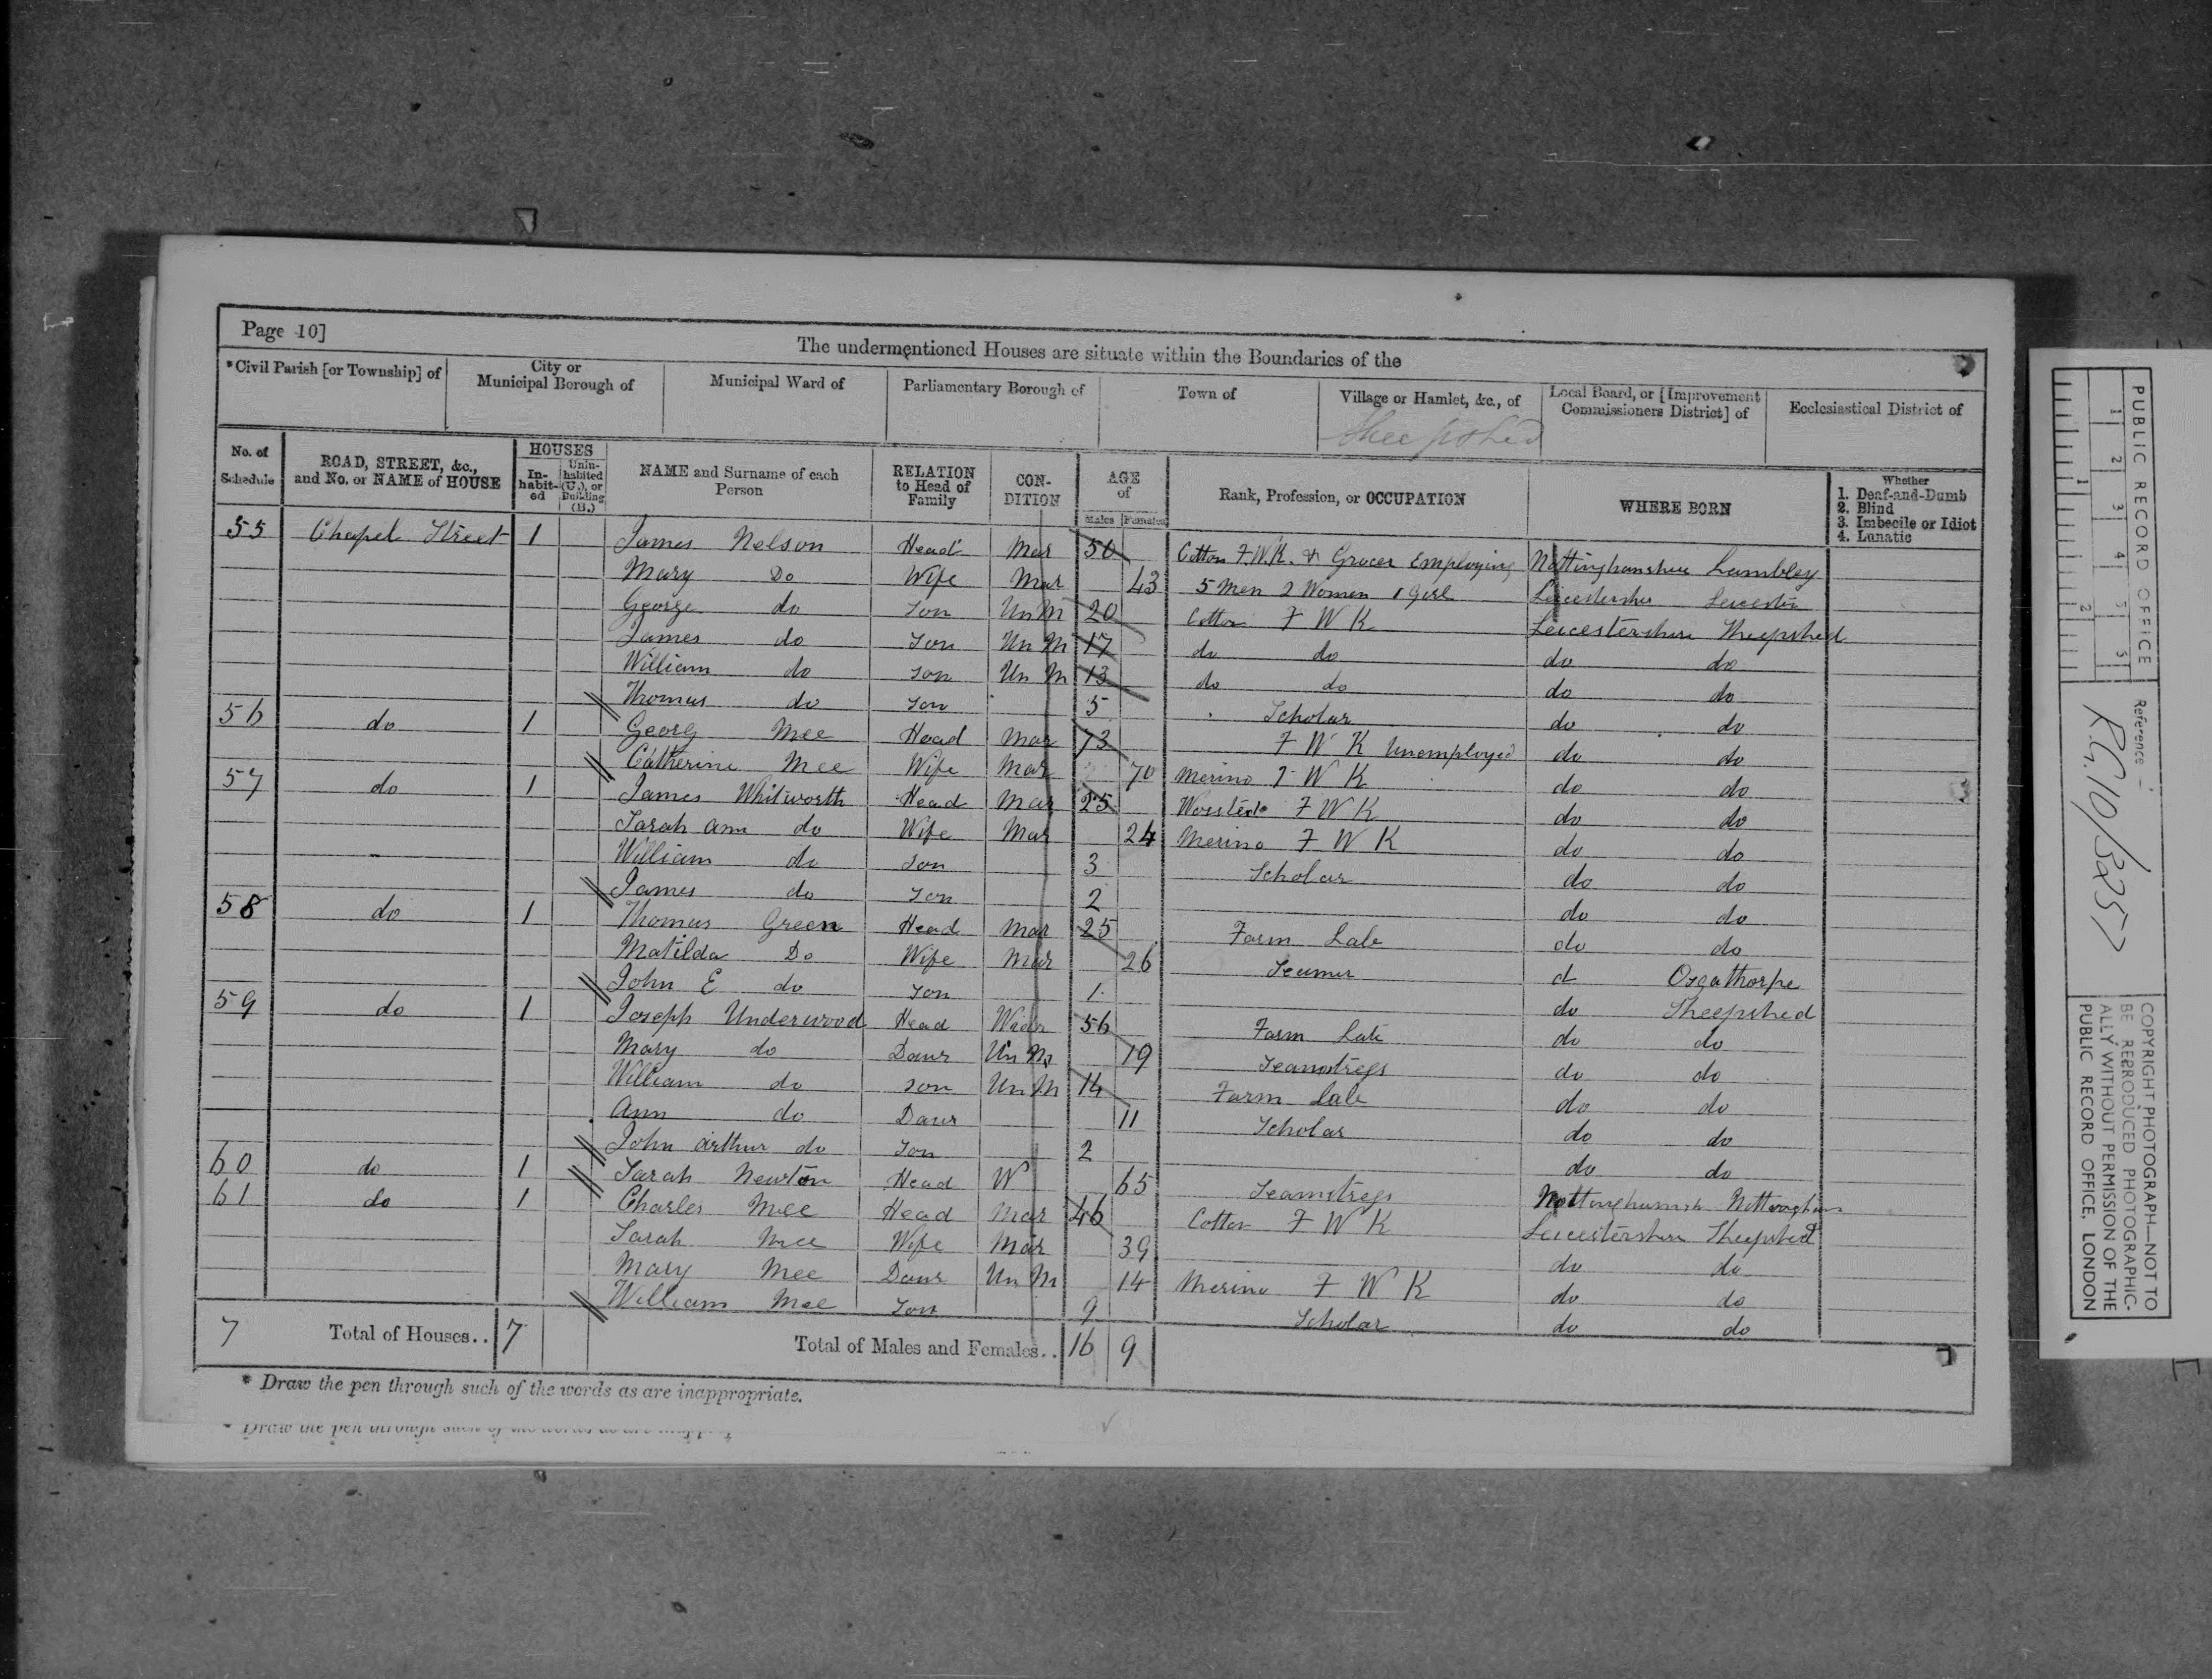 Page 10]
The undermentioned Houses are situate within the Boundaries of the
*Civil Parish [or Township] of City or Municipal Borough of Municipal Ward of Parliamentary Borough of Town of Village or Hamlet, &c., of Local Board, or [Improvement Commissioners District] of Ecclesiastical District of
Sheepshed
No. of Schedule ROAD, STREET, &c., and No. or NAME of HOUSE HOUSES In-habit-ed Unin-habited (U.), or Building (B.) NAME and Surname of each Person RELATION to Head of Family CON-DITION AGE of Males Females Rank, Profession, or OCCUPATION WHERE BORN Whether 1. Deaf-and-Dumb 2. Blind 3. Imbecile or Idiot 4. Lunatic
55 Chapel Street 1 James Nelson Head Mar 50 Cotton F.W.K. & Grocer Employing Nottinghamshire Lambley
Mary Do Wife Mar 43 5 Men 2 Women 1 Girl Leicestershire Leicester
George do Son Un M 20 Cotton F W K Leicestershire Sheepshed
James do Son Un M 17 do do do do
William do Son Un M 13 do do do do
Thomas do Son 5 Scholar do do
56 do 1 Georg Mee Head Mar 73 F W K Unemployed do do
Catherine Mee Wife Mar 70 Merino F W K do do
57 do 1 James Whitworth Head Mar 25 Worsted F W K do do
Sarah Ann do Wife Mar 24 Merino F W K do do
William do Son 3 Scholar do do
James do Son 2 do do
58 do 1 Thomas Green Head Mar 25 Farm Lab do do
Matilda Do Wife Mar 26 Seamer d Osgathorpe
John E do Son 1 do Sheepshed
59 do 1 Joseph Underwood Head Widr 56 Farm Lab do do
Mary do Daur Un M 19 Seamstress do do
William do Son Un M 14 Farm Lab do do
Ann do Daur 11 Scholar do do
John Arthur do Son 2 do do
60 do 1 Sarah Newton Head W 65 Seamstress Nottinghamsh Nottingham
61 do 1 Charles Mee Head Mar 46 Cotton F W K Leicestershire Sheepshed
Sarah Mee Wife Mar 39 do do
Mary Mee Daur Un M 14 Merino F W K do do
William Mee Son 9 Scholar do do
7 Total of Houses.. 7 Total of Males and Females.. 16 9
* Draw the pen through such of the words as are inappropriate.
PUBLIC RECORD OFFICE
1 2 3 4 5 6
1 2
Reference :-
R.G. 10/3257
COPYRIGHT PHOTOGRAPH—NOT TO
BE REPRODUCED PHOTOGRAPHIC-
ALLY WITHOUT PERMISSION OF THE
PUBLIC RECORD OFFICE, LONDON